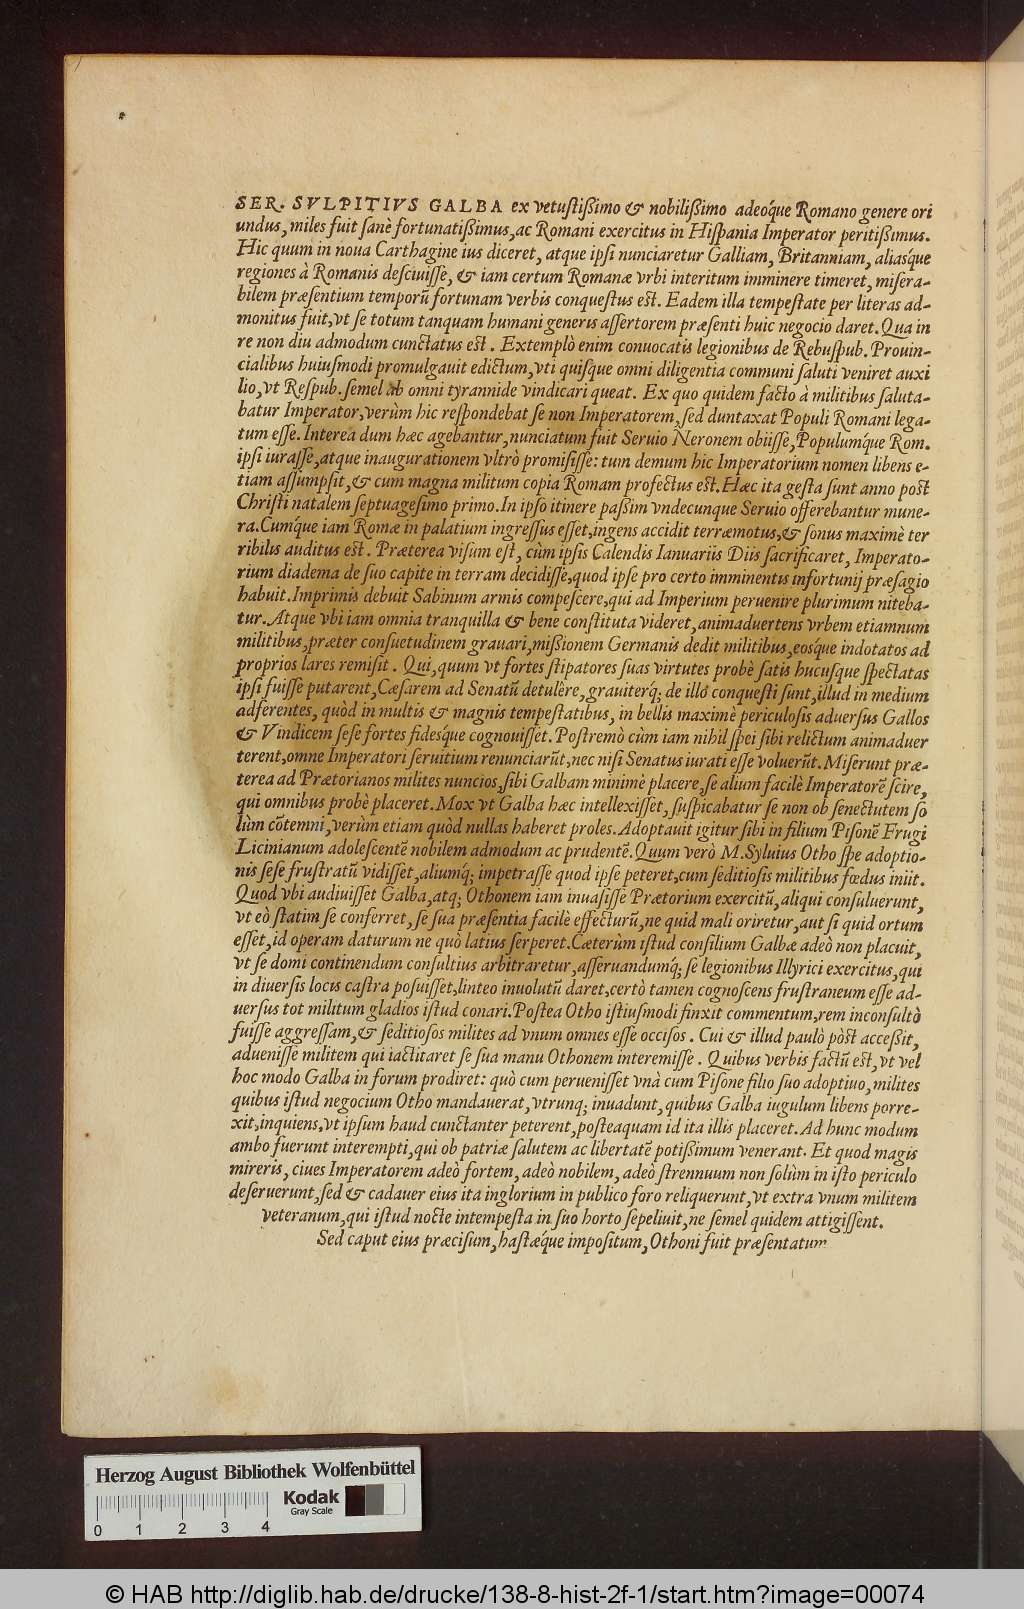 SER. SVLPITIVS GALBA ex vetustißimo & nobilißimo adeoq́ue Romano genere ori
undus, miles fuit sanè fortunatißimus, ac Romani exercitus in Hispania Imperator peritißimus.
Hic quum in noua Carthagine ius diceret, atque ipsi nunciaretur Galliam, Britanniam, aliasq́ue
regiones à Romanis desciuisse, & iam certum Romanæ vrbi interitum imminere timeret, misera-
bilem præsentium temporũ fortunam verbis conquestus est. Eadem illa tempestate per literas ad-
monitus fuit, vt se totum tanquam humani generis assertorem præsenti huic negocio daret. Qua in
re non diu admodum cunctatus est. Extemplò enim conuocatis legionibus de Rebuspub. Prouin-
cialibus huiusmodi promulgauit edictum, vti quisque omni diligentia communi saluti veniret auxi
lio, vt Respub. semel ab omni tyrannide vindicari queat. Ex quo quidem facto à militibus saluta-
batur Imperator, verùm hic respondebat se non Imperatorem, sed duntaxat Populi Romani lega-
tum esse. Interea dum hæc agebantur, nunciatum fuit Seruio Neronem obiisse, Populumq́ue Rom.
ipsi iurasse, atque inaugurationem vltrò promisisse: tum demum hic Imperatorium nomen libens e-
tiam assumpsit, & cum magna militum copia Romam profectus est. Hæc ita gesta sunt anno post
Christi natalem septuagesimo primo. In ipso itinere passim vndecunque Seruio offerebantur mune-
ra. Cumq́ue iam Romæ in palatium ingressus esset, ingens accidit terræmotus, & sonus maximè ter
ribilis auditus est. Præterea visum est, cùm ipsis Calendis Ianuariis Diis sacrificaret, Imperato-
rium diadema de suo capite in terram decidisse, quod ipse pro certo imminentis infortunij præsagio
habuit. Imprimis debuit Sabinum armis compescere, qui ad Imperium peruenire plurimum niteba-
tur. Atque vbi iam omnia tranquilla & bene constituta videret, animaduertens vrbem etiamnum
militibus, præter consuetudinem grauari, mißionem Germanis dedit militibus, eosq́ue indotatos ad
proprios lares remisit. Qui, quum vt fortes stipatores suas virtutes probè satis hucusque spectatas
ipsi fuisse putarent, Cæsarem ad Senatũ detulêre, grauiterq́; de illo conquesti sunt, illud in medium
adferentes, quòd in multis & magnis tempestatibus, in bellis maximè periculosis aduersus Gallos
& Vindicem sese fortes fidesque cognouisset. Postremò cùm iam nihil spei sibi relictum animaduer
terent, omne Imperatori seruitium renunciarũt, nec nisi Senatus iurati esse voluerũt. Miserunt præ-
terea ad Prætorianos milites nuncios, sibi Galbam minimè placere, se alium facilè Imperatorẽ scire,
qui omnibus probè placeret. Mox vt Galba hæc intellexisset, suspicabatur se non ob senectutem so
lùm cõtemni, verùm etiam quòd nullas haberet proles. Adoptauit igitur sibi in filium Pisonẽ Frugi
Licinianum adolescentẽ nobilem admodum ac prudentẽ. Quum verò M. Syluius Otho spe adoptio-
nis sese frustratũ vidisset, aliumq́; impetrasse quod ipse peteret, cum seditiosis militibus fœdus iniit.
Quod vbi audiuisset Galba, atq; Othonem iam inuasisse Prætorium exercitũ, aliqui consuluerunt,
vt eò statim se conferret, se sua præsentia facilè effecturũ, ne quid mali oriretur, aut si quid ortum
esset, id operam daturum ne quò latius serperet. Cæterùm istud consilium Galbæ adeò non placuit,
vt se domi continendum consultius arbitraretur, asseruandumq́; se legionibus Illyrici exercitus, qui
in diuersis locis castra posuisset, linteo inuolutũ daret, certò tamen cognoscens frustraneum esse ad-
uersus tot militum gladios istud conari. Postea Otho istiusmodi finxit commentum, rem inconsultò
fuisse aggressam, & seditiosos milites ad vnum omnes esse occisos. Cui & illud paulò pòst acceßit,
aduenisse militem qui iactitaret se sua manu Othonem interemisse. Quibus verbis factũ est, vt vel
hoc modo Galba in forum prodiret: quò cum peruenisset vnà cum Pisone filio suo adoptiuo, milites
quibus istud negocium Otho mandauerat, vtrunq; inuadunt, quibus Galba iugulum libens porre-
xit, inquiens, vt ipsum haud cunctanter peterent, posteaquam id ita illis placeret. Ad hunc modum
ambo fuerunt interempti, qui ob patriæ salutem ac libertatẽ potißimum venerant. Et quod magis
mireris, ciues Imperatorem adeò fortem, adeò nobilem, adeò strennuum non solùm in isto periculo
deseruerunt, sed & cadauer eius ita inglorium in publico foro reliquerunt, vt extra vnum militem
veteranum, qui istud nocte intempesta in suo horto sepeliuit, ne semel quidem attigissent.
Sed caput eius præcisum, hastæq́ue impositum, Othoni fuit præsentatum
Herzog August Bibliothek Wolfenbüttel
Kodak
Gray Scale
0 1 2 3 4
© HAB http://diglib.hab.de/drucke/138-8-hist-2f-1/start.htm?image=00074